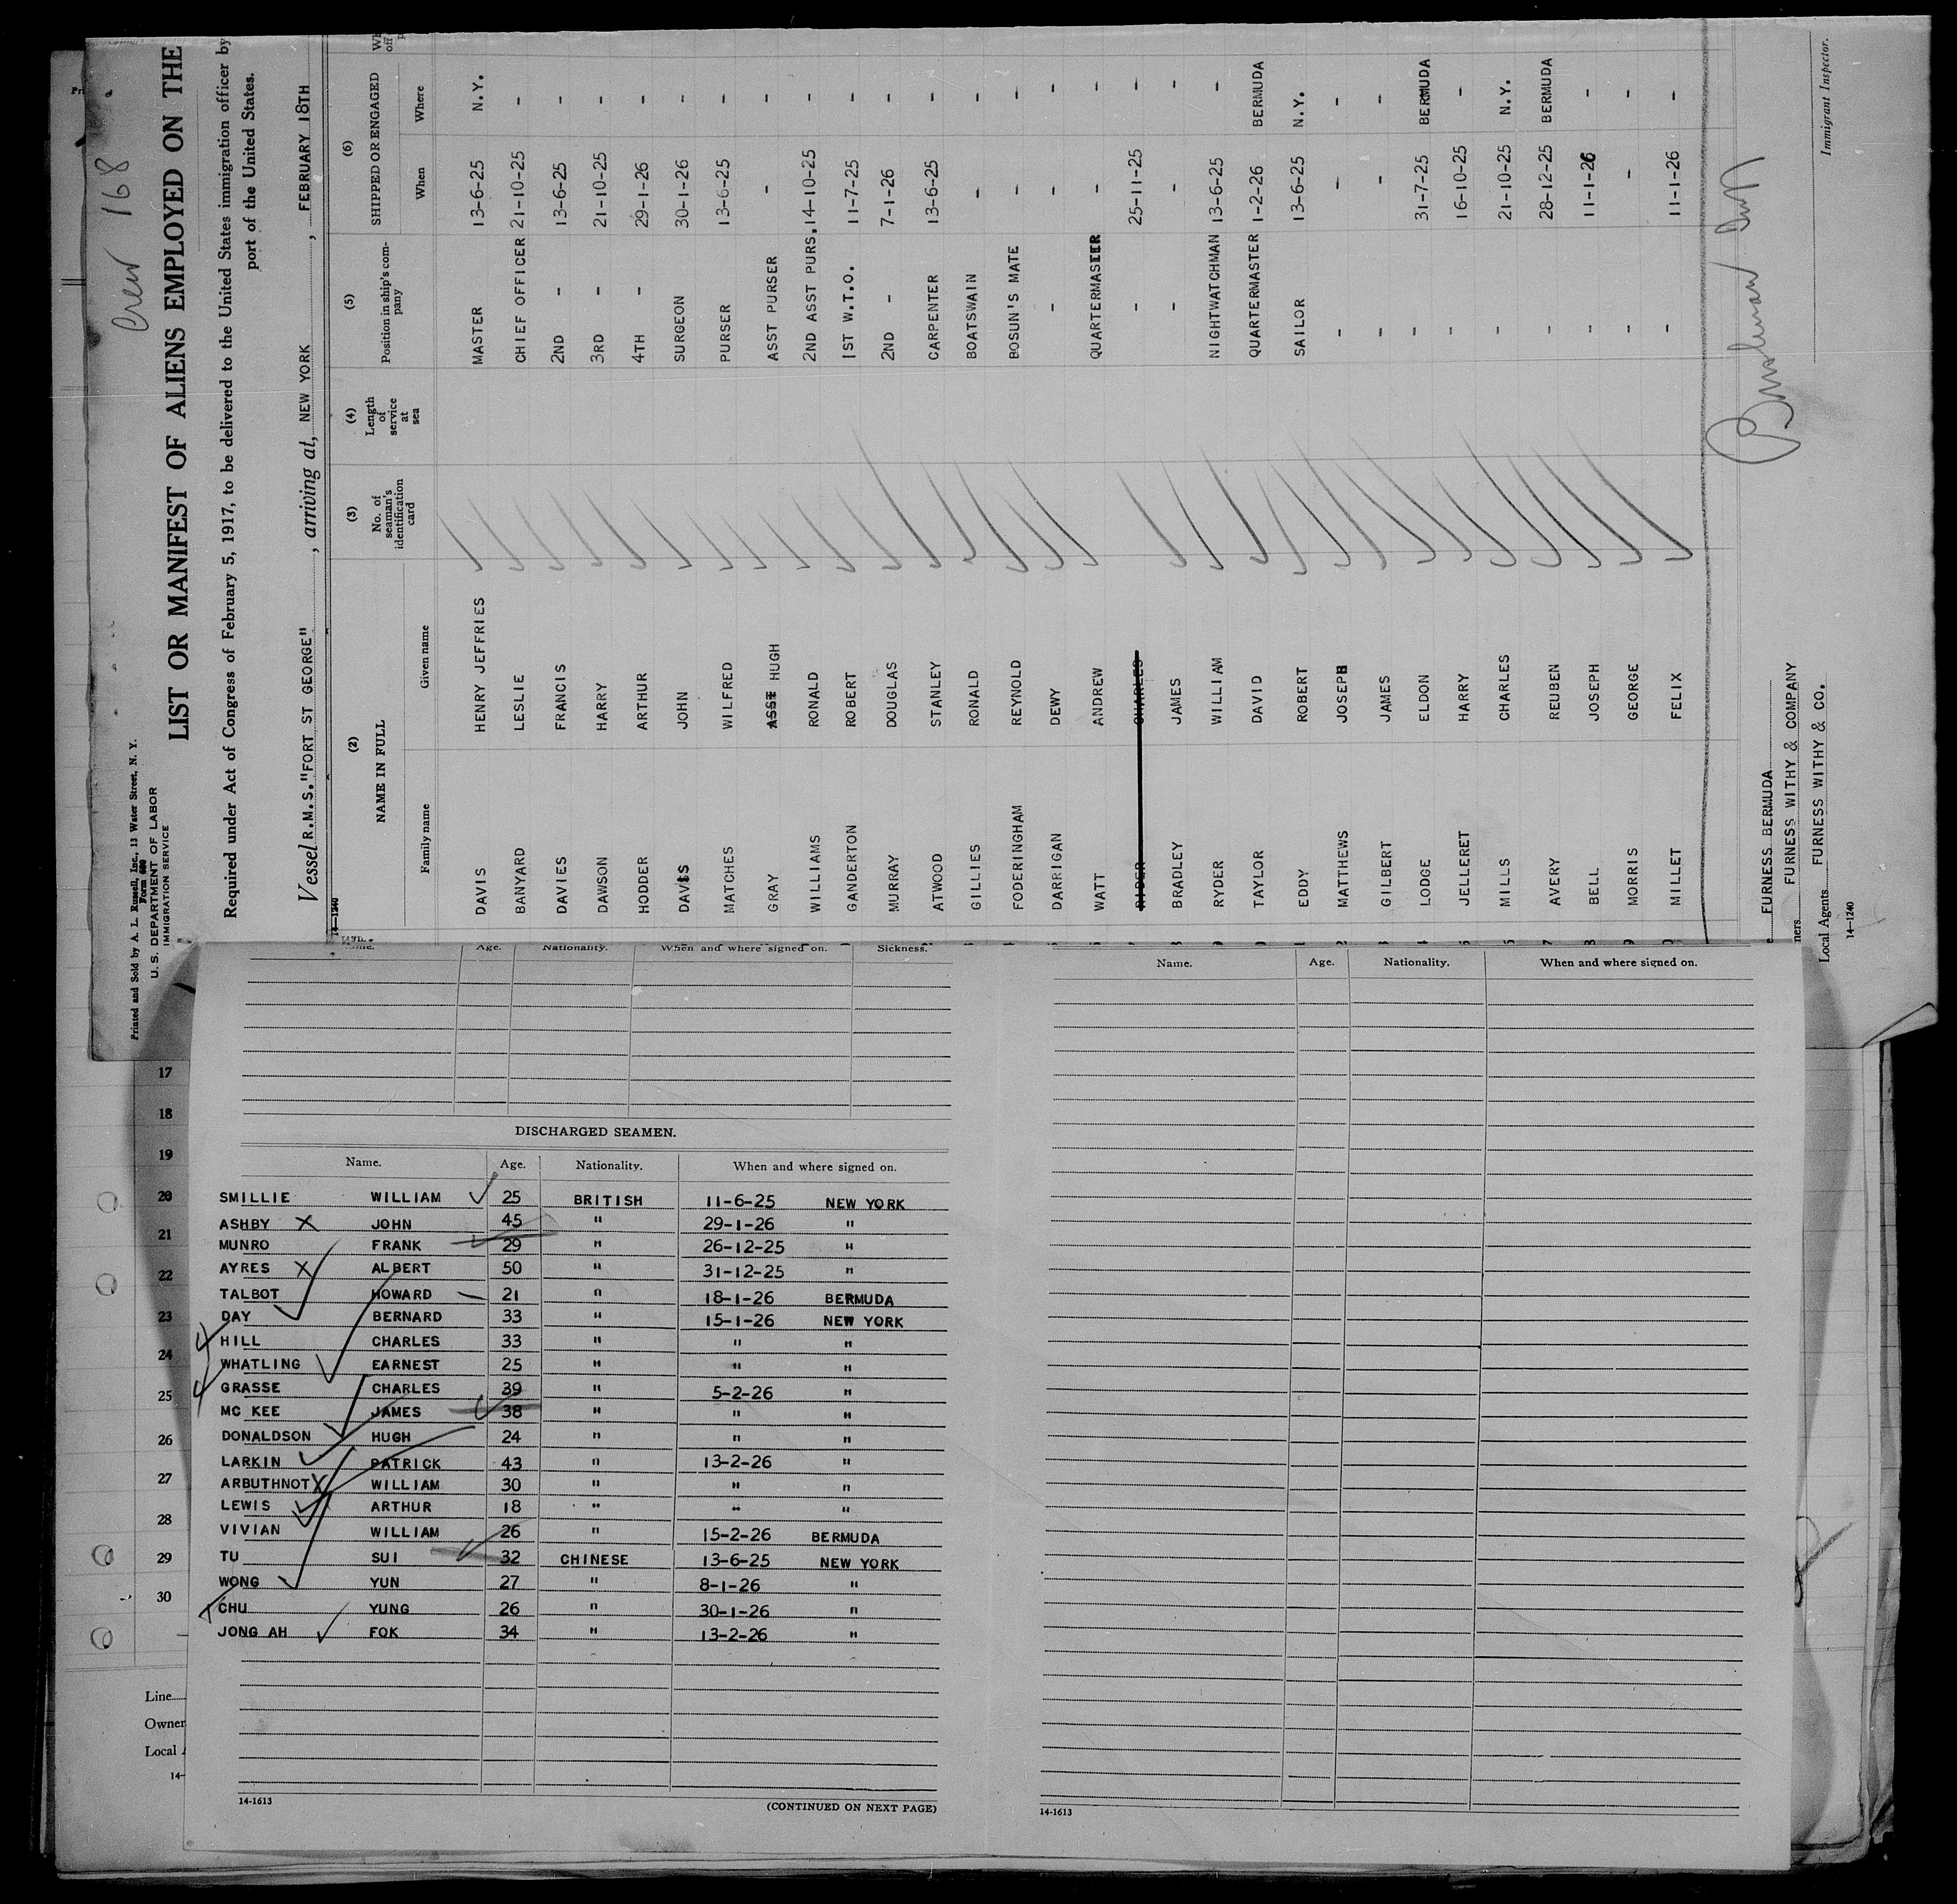 Crew 168
Printed and Sold by A. L. Russell, Inc., 13 Water Street, N. Y.
U. S. DEPARTMENT OF LABOR
IMMIGRATION SERVICE
LIST OR MANIFEST OF ALIENS EMPLOYED ON THE
Required under Act of Congress of February 5, 1917, to be delivered to the United States immigration officer by
port of the United States.
Vessel R.M.S. "FORT ST GEORGE" , arriving at, NEW YORK , FEBRUARY 18TH
14—1240
(2) (3) (4) (5) (6)
NAME IN FULL No. of seaman's identification card Length of service at sea Position in ship's com- pany SHIPPED OR ENGAGED
Family name Given name When Where
DAVIS HENRY JEFFRIES MASTER 13-6-25 N.Y.
BANYARD LESLIE CHIEF OFFICER 21-10-25 -
DAVIES FRANCIS 2ND - 13-6-25 -
DAWSON HARRY 3RD - 21-10-25 -
HODDER ARTHUR 4TH - 29-1-26 -
DAVIS JOHN SURGEON 30-1-26 -
MATCHES WILFRED PURSER 13-6-25 -
GRAY HUGH ASST PURSER - -
WILLIAMS RONALD 2ND ASST PURS. 14-10-25 -
GANDERTON ROBERT 1ST W.T.O. 11-7-25 -
MURRAY DOUGLAS 2ND - 7-1-26 -
ATWOOD STANLEY CARPENTER 13-6-25 -
GILLIES RONALD BOATSWAIN - -
FODERINGHAM REYNOLD BOSUN'S MATE - -
DARRIGAN DEWY - - -
WATT ANDREW QUARTERMASTER - -
RIDER CHARLES - 25-11-25 -
BRADLEY JAMES - - -
RYDER WILLIAM NIGHTWATCHMAN 13-6-25 -
TAYLOR DAVID QUARTERMASTER 1-2-26 BERMUDA
EDDY ROBERT SAILOR 13-6-25 N.Y.
MATTHEWS JOSEPH - - -
GILBERT JAMES - - -
LODGE ELDON - 31-7-25 BERMUDA
JELLERET HARRY - 16-10-25 -
MILLS CHARLES - 21-10-25 N.Y.
AYERY REUBEN - 28-12-25 BERMUDA
BELL JOSEPH - 11-1-26 -
MORRIS GEORGE - - -
MILLET FELIX - 11-1-26 -
FURNESS BERMUDA
FURNESS WITHY & COMPANY
Local Agents FURNESS WITHY & CO.
Immigrant Inspector.
14—1240
Age. Nationality. When and where signed on. Sickness.
DISCHARGED SEAMEN.
Name. Age. Nationality. When and where signed on.
SMILLIE WILLIAM 25 BRITISH 11-6-25 NEW YORK
ASHBY JOHN 45 " 29-1-26 "
MUNRO FRANK 29 " 26-12-25 "
AYRES ALBERT 50 " 31-12-25 "
TALBOT HOWARD 21 " 18-1-26 BERMUDA
DAY BERNARD 33 " 15-1-26 NEW YORK
HILL CHARLES 33 " " "
WHATLING EARNEST 25 " " "
GRASSE CHARLES 39 " 5-2-26 "
MC KEE JAMES 38 " " "
DONALDSON HUGH 24 " " "
LARKIN PATRICK 43 " 13-2-26 "
ARBUTHNOT WILLIAM 30 " " "
LEWIS ARTHUR 18 " " "
VIVIAN WILLIAM 26 " 15-2-26 BERMUDA
TU SUI 32 CHINESE 13-6-25 NEW YORK
WONG YUN 27 " 8-1-26 "
CHU YUNG 26 " 30-1-26 "
JONG AH FOK 34 " 13-2-26 "
14-1613
(CONTINUED ON NEXT PAGE)
Name. Age. Nationality. When and where signed on.
14-1613
17
18
19
20
21
22
23
24
25
26
27
28
29
30
Line
Owner
Local
14—